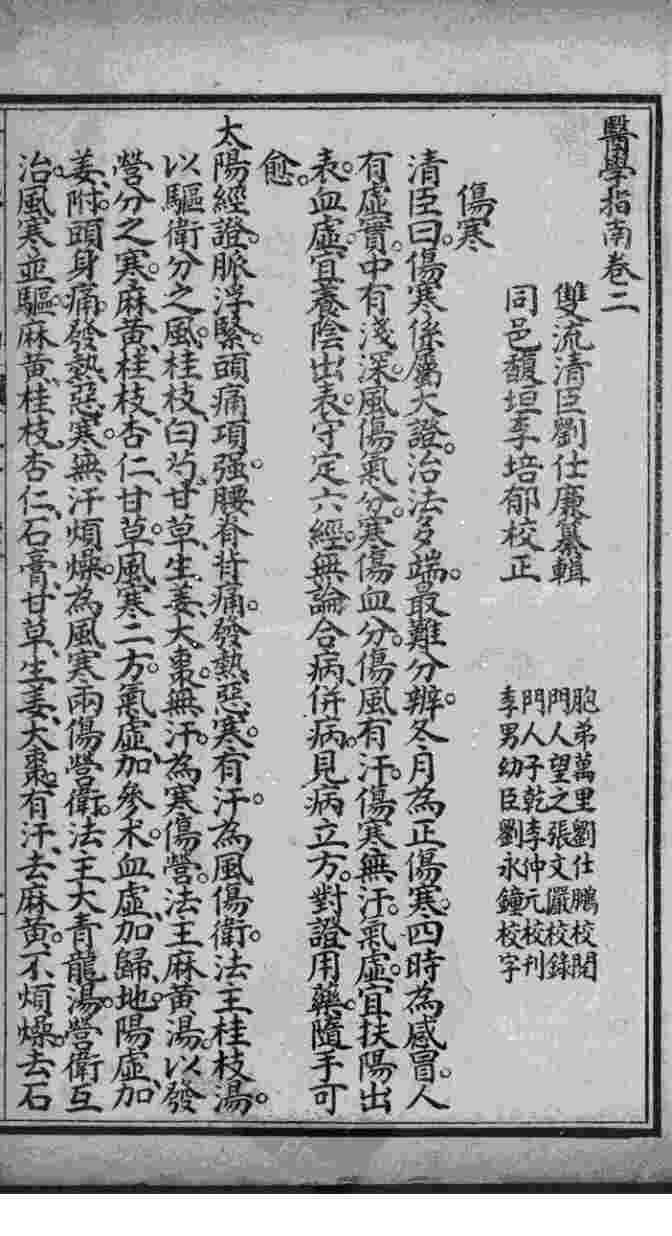 醫學指南卷二
雙流清臣劉仕廉纂輯
同邑馥垣李培郁校正
胞弟萬里劉仕鵬校閱
門人望之張文儼校錄
門人子乾李仲元校刊
李男幼臣劉永鐘校字
傷寒
清臣曰。傷寒係屬大證。治法多端。最難分辨。冬月為正傷寒。四時為感冒。人
有虛實。中有淺深。風傷氣分。寒傷血分。傷風有汗。傷寒無汗。氣虛。宜扶陽出
表。血虛。宜養陰出表。守定六經。無論合病、併病。見病立方。對證用藥。隨手可
愈。
太陽經證。脈浮緊。頭痛項强。腰脊背痛。發熱惡寒。有汗。為風傷衛。法主桂枝湯。
以驅衛分之風。桂枝、白芍、甘草、生姜、大棗。無汗。為寒傷營。法主麻黃湯。以發
營分之寒。麻黃、桂枝、杏仁、甘草。風寒二方。氣虛、加參朮。血虛、加歸地。陽虛、加
姜、附。頭身痛。發熱惡寒。無汗煩燥。為風寒兩傷營衛。法主大青龍湯。營衛互
治。風寒並驅。麻黃、桂枝、杏仁、石膏、甘草、生姜、大棗。有汗、去麻黃。不煩燥。去石